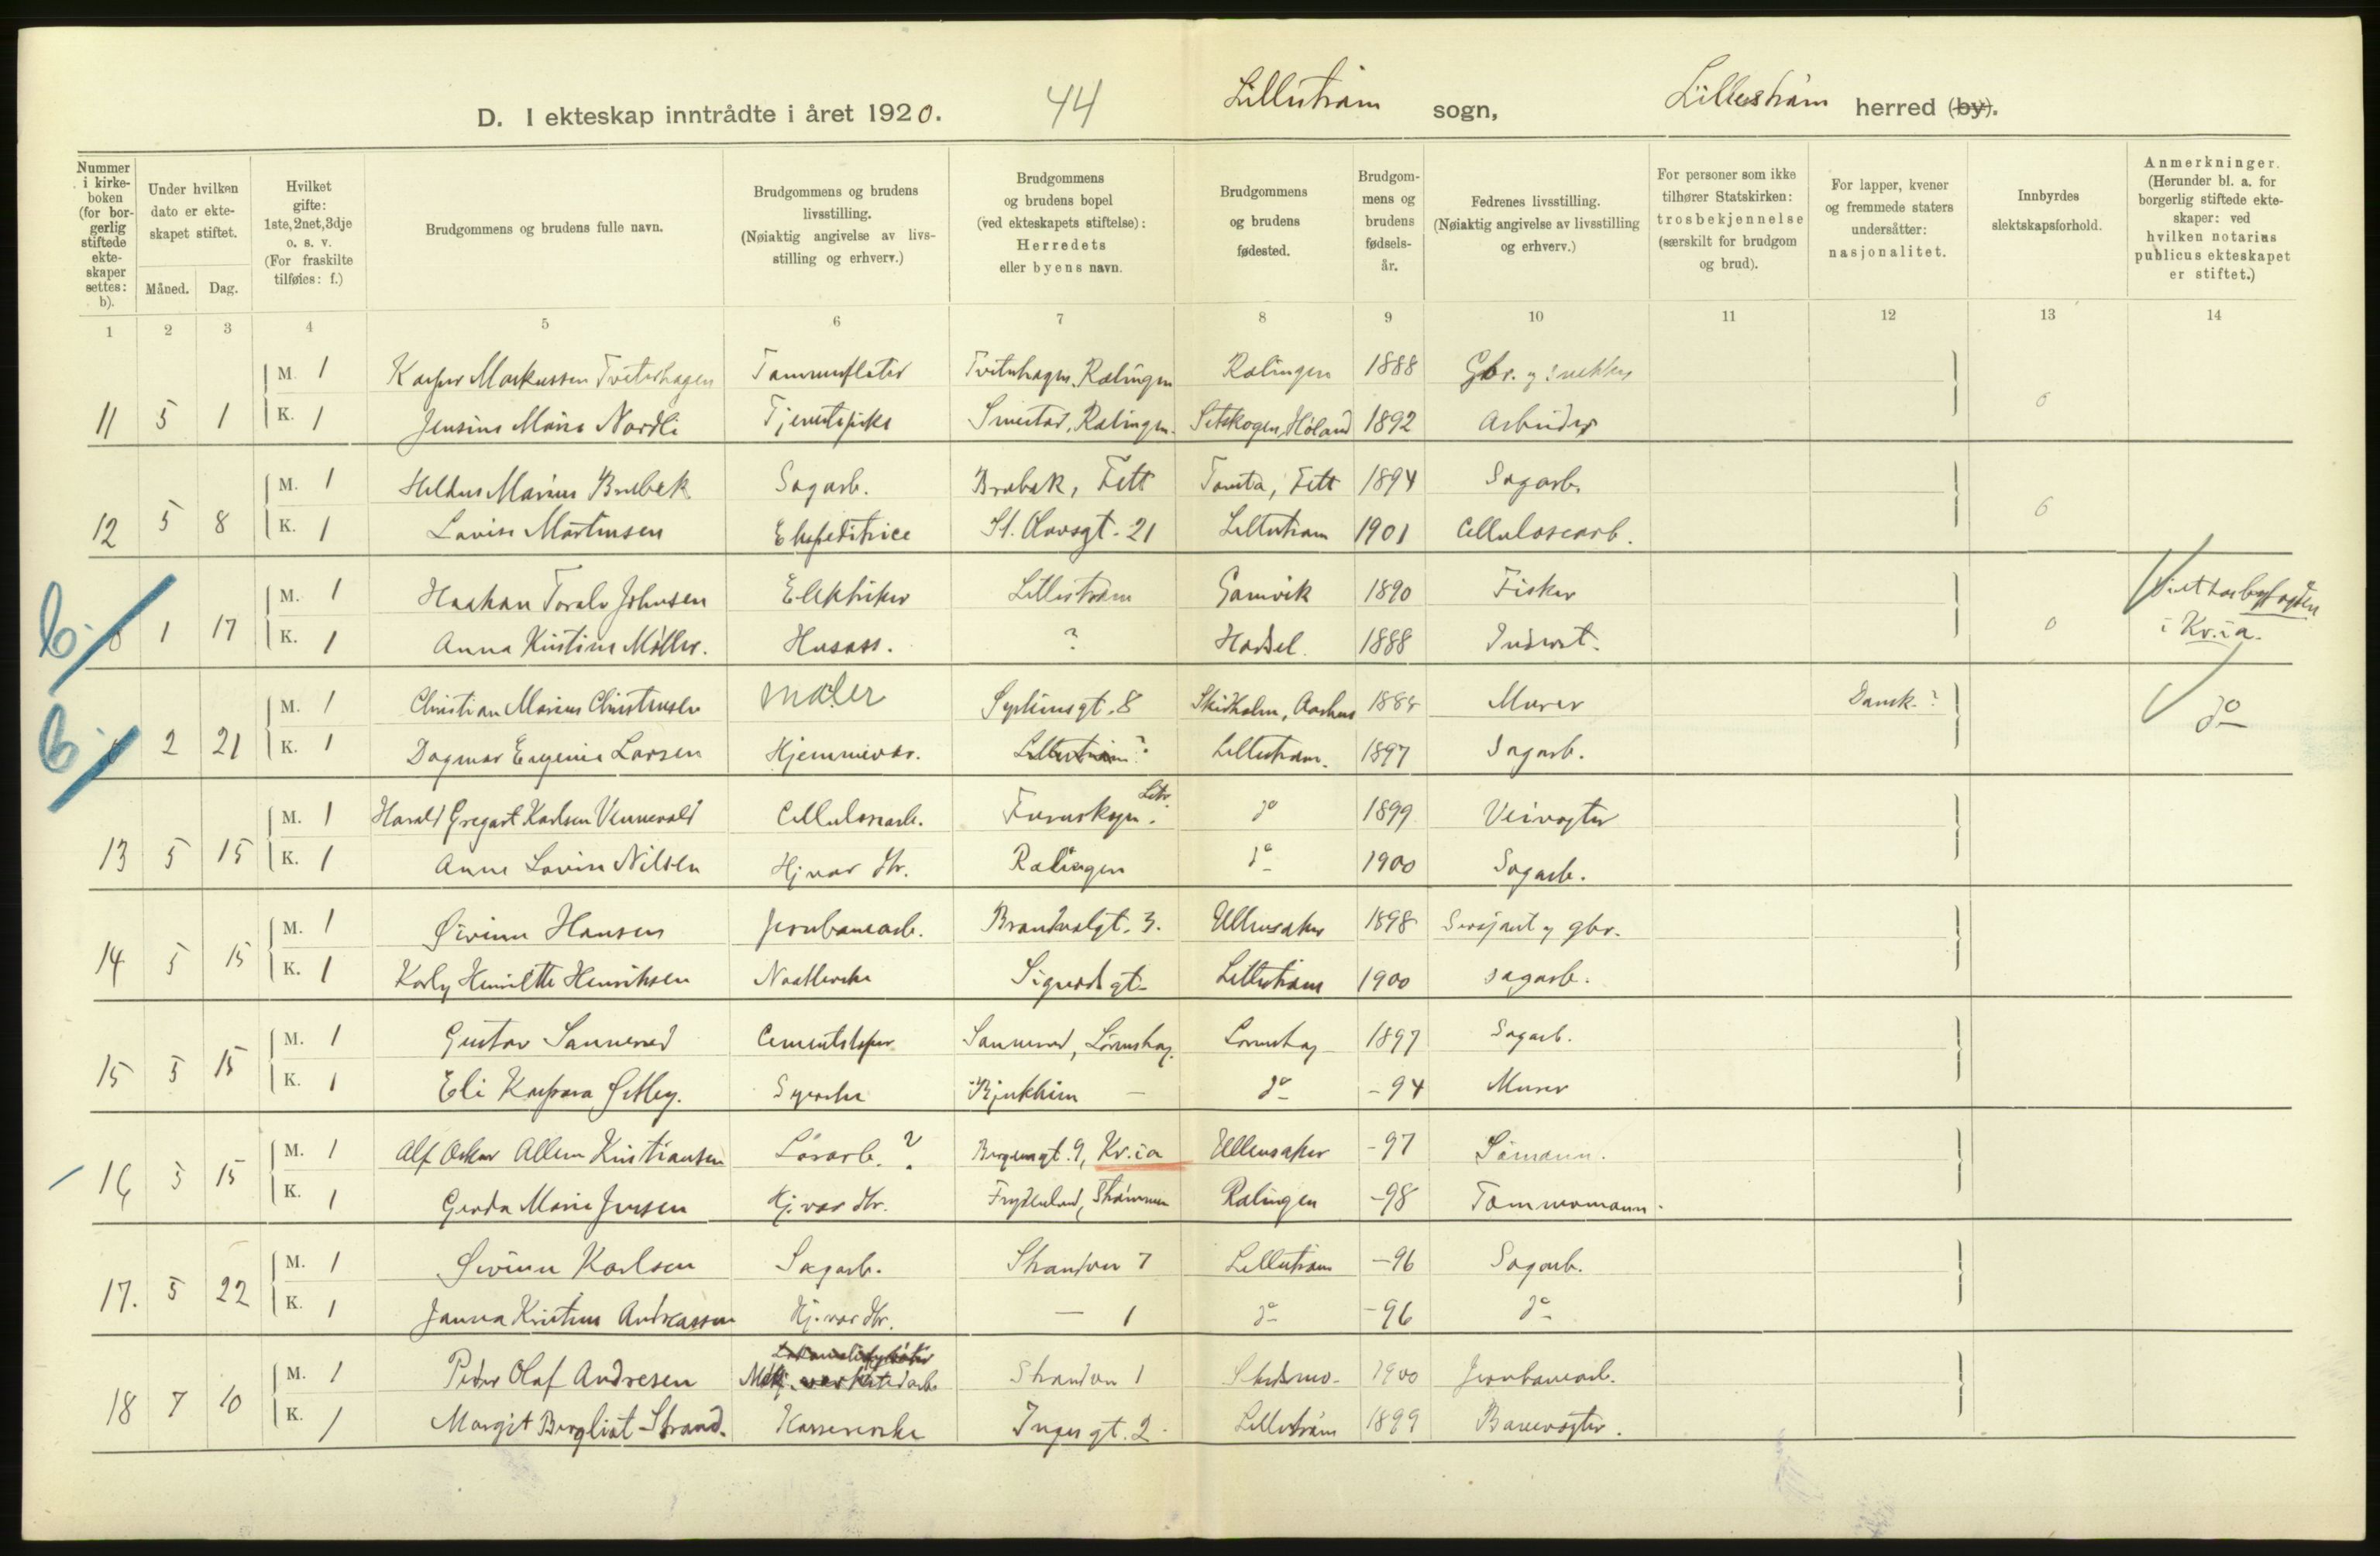 D. I ekteskap inntrådte i året 1920. 44 Lillestrøm sogn, Lillestrøm herred (by).
Nummer i kirke-boken (for bor-gerlig stiftede ekte-skaper settes: b).
Under hvilken dato er ekte-skapet stiftet.
Måned. Dag.
Hvilket gifte: 1ste, 2net, 3dje o. s. v. (For fraskilte tilføies: f.)
Brudgommens og brudens fulle navn.
Brudgommens og brudens livsstilling. (Nøiaktig angivelse av livs-stilling og erhverv.)
Brudgommens og brudens bopel (ved ekteskapets stiftelse): Herredets eller byens navn.
Brudgommens og brudens fødested.
Brudgom-mens og brudens fødsels-år.
Fedrenes livsstilling. (Nøiaktig angivelse av livsstilling og erhverv.)
For personer som ikke tilhører Statskirken: trosbekjennelse (særskilt for brudgom og brud).
For lapper, kvener og fremmede staters undersåtter: nasjonalitet.
Innbyrdes slektskapsforhold.
Anmerkninger. (Herunder bl. a. for borgerlig stiftede ekte-skaper: ved hvilken notarius publicus ekteskapet er stiftet.)
1 2 3 4 5 6 7 8 9 10 11 12 13 14
M. 1 Kasper Markussen Tveterhagen Tømmerfløter Tveterhagen, Rælingen Rælingen 1888 Gbr.
11 5 1 K. 1 Jensine Marie Nordli Tjenestepike Smestad, Rælingen Setskogen, Høland 1892 Arbeider 0
M. 1 Marius Brubæk Sagarb. Brubæk, Fett Tomta, Fett 1894 Sagarb.
12 5 8 K. 1 Lovise Martinsen Ekspeditrice St. Olavsgt. 21 Lillestrøm 1901 Cellulosearb. 0
b. 1 17 M. 1 Haakon Toralv Johnsen Elektriker Lillestrøm Gamvik 1890 Fisker
K. 1 Anna Kristine Møller. Husass. ? Hadsel 1888 0 i Kr.ia.
b. 2 21 M. 1 Christian Marius Christensen maler 8 Aarhus Murer Dansk ? do
K. 1 Dagmar Eugenie Larsen Hjemmevær. Lillestrøm ? Lillestrøm. 1897 Sagarb.
M. 1 Harald Gregart Karlsen Vennevold Cellulosearb. Lstr. do 1899 Veivogter
13 5 15 K. 1 Anne Lovise Nilsen Hj.vær dtr. Rælingen do 1900 Sagarb.
M. 1 Øivinn Hansen Jernbanearb. Brandvalgt. 3. Ullensaker 1898 Sersjant og gbr.
14 5 15 K. 1 Karly Henriette Henriksen Naatlerske Sigurdsgt. Lillestrøm 1900 Sagarb.
M. 1 Gustav Sannerud Cementstøper Sannerud, Lørenskog. Lørenskog 1897 Sagarb.
15 5 15 K. 1 Eli Kaspara Sætley. Syerske Bjerkheim — do - 94 Murer
M. 1 Alf Oskar Allern Kristiansen Lørarb. ? Bergensgt. 9, Kr.ia Ullensaker -97 Sømann.
16 5 15 K. 1 Gerda Marie Jensen Hj.vær dtr. Frydenlund, Strømmen Rælingen -98 Tømmermann.
M. 1 Øivinn Karlsen Sagarb. Strandvn 7 Lillestrøm -96 Sagarb.
17. 5 22 K. 1 Janna Kristine Andreassen Hj.vær dtr. — 1 do -96 do
M. 1 Peder Olaf Andresen Mek. verkstedarb. Strandvn 1 Skedsmo. 1900 Jernbanearb.
18 7 10 K. 1 Margit Bergliot Strand. Kassererske Ingersgt. 2. Lillestrøm 1899 Banevogter.